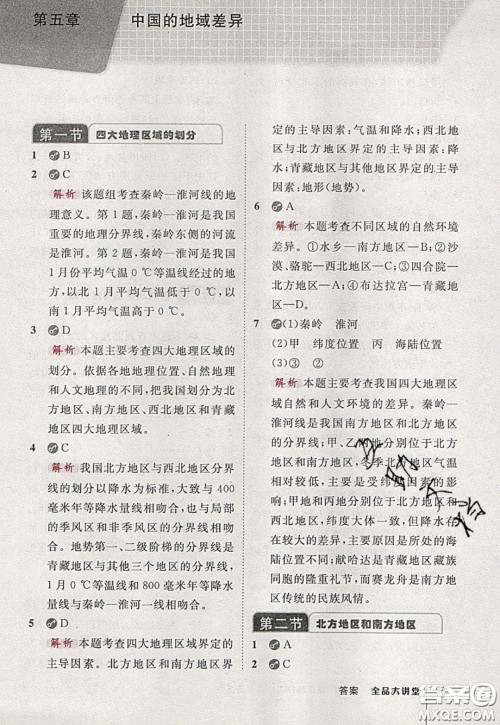 第五章 中国的地域差异
第一节 四大地理区域的划分
1 B
2 C
解析 该题组考查秦岭—淮河线的地
理意义。第1题，秦岭—淮河是我国
重要的地理分界线，秦岭东侧的河流
是淮河。第2题，秦岭—淮河是我国
1月份平均气温0℃等温线经过的地
方，以北1月平均气温低于0℃，以
南1月平均气温高于0℃。
3 D
解析 本题主要考查四大地理区域的
划分。依据各地地理位置、自然地理
和人文地理的不同，把我国划分为北
方地区、南方地区、西北地区和青藏
地区四大地理区域。
4 C
解析 我国北方地区与西北地区分界
线的划分以降水为标准，大致与400
毫米年等降水量线一致，也与季风区
和非季风区的分界线相吻合，与外部
地势第一、二级阶梯的分界线是
青藏地区与其他地区的分界线。1月
0℃等温线和800毫米年等降水量
线与秦岭—淮河一线相吻合。
5 D
解析 本题考查四大地理区域界定的
主导因素。北方地区与南方地区界
定的主导因素：气温和降水；西北地
区与北方地区界定的主导因素：降
水；青藏地区与其他地区界定的主导因
素：地形(地势)。
6
解析 本题考查不同区域的自然环境
差异。①水乡—南方地区—B；②沙
漠、骆驼—西北地区—A；③四合院—
北方地区—C；④布达拉宫—青藏地
区—D。
7 (1)秦岭 淮河
(2)甲 纬度位置 丙 海陆位置
(3)③ ②
解析 本题主要考查我国四大地理区
域自然和人文环境的差异。秦岭—淮
河一线是我国南方地区和北方地区
的分界线；甲、乙两地分别位于南方
地区和北方地区，冬季北方地区气温
相对较低，主要是受纬度因素的影
响；甲地和丙地分别位于北方地区和
西北地区，纬度大致一致，但降水存
在较大的差异，主要原因是所处的海
陆位置不同；献哈达是青藏地区藏族
同胞的隆重礼节，而赛龙舟是南方地
区传统的民族风情。
第二节 北方地区和南方地区
1 A
2 C
答案 全品大讲堂